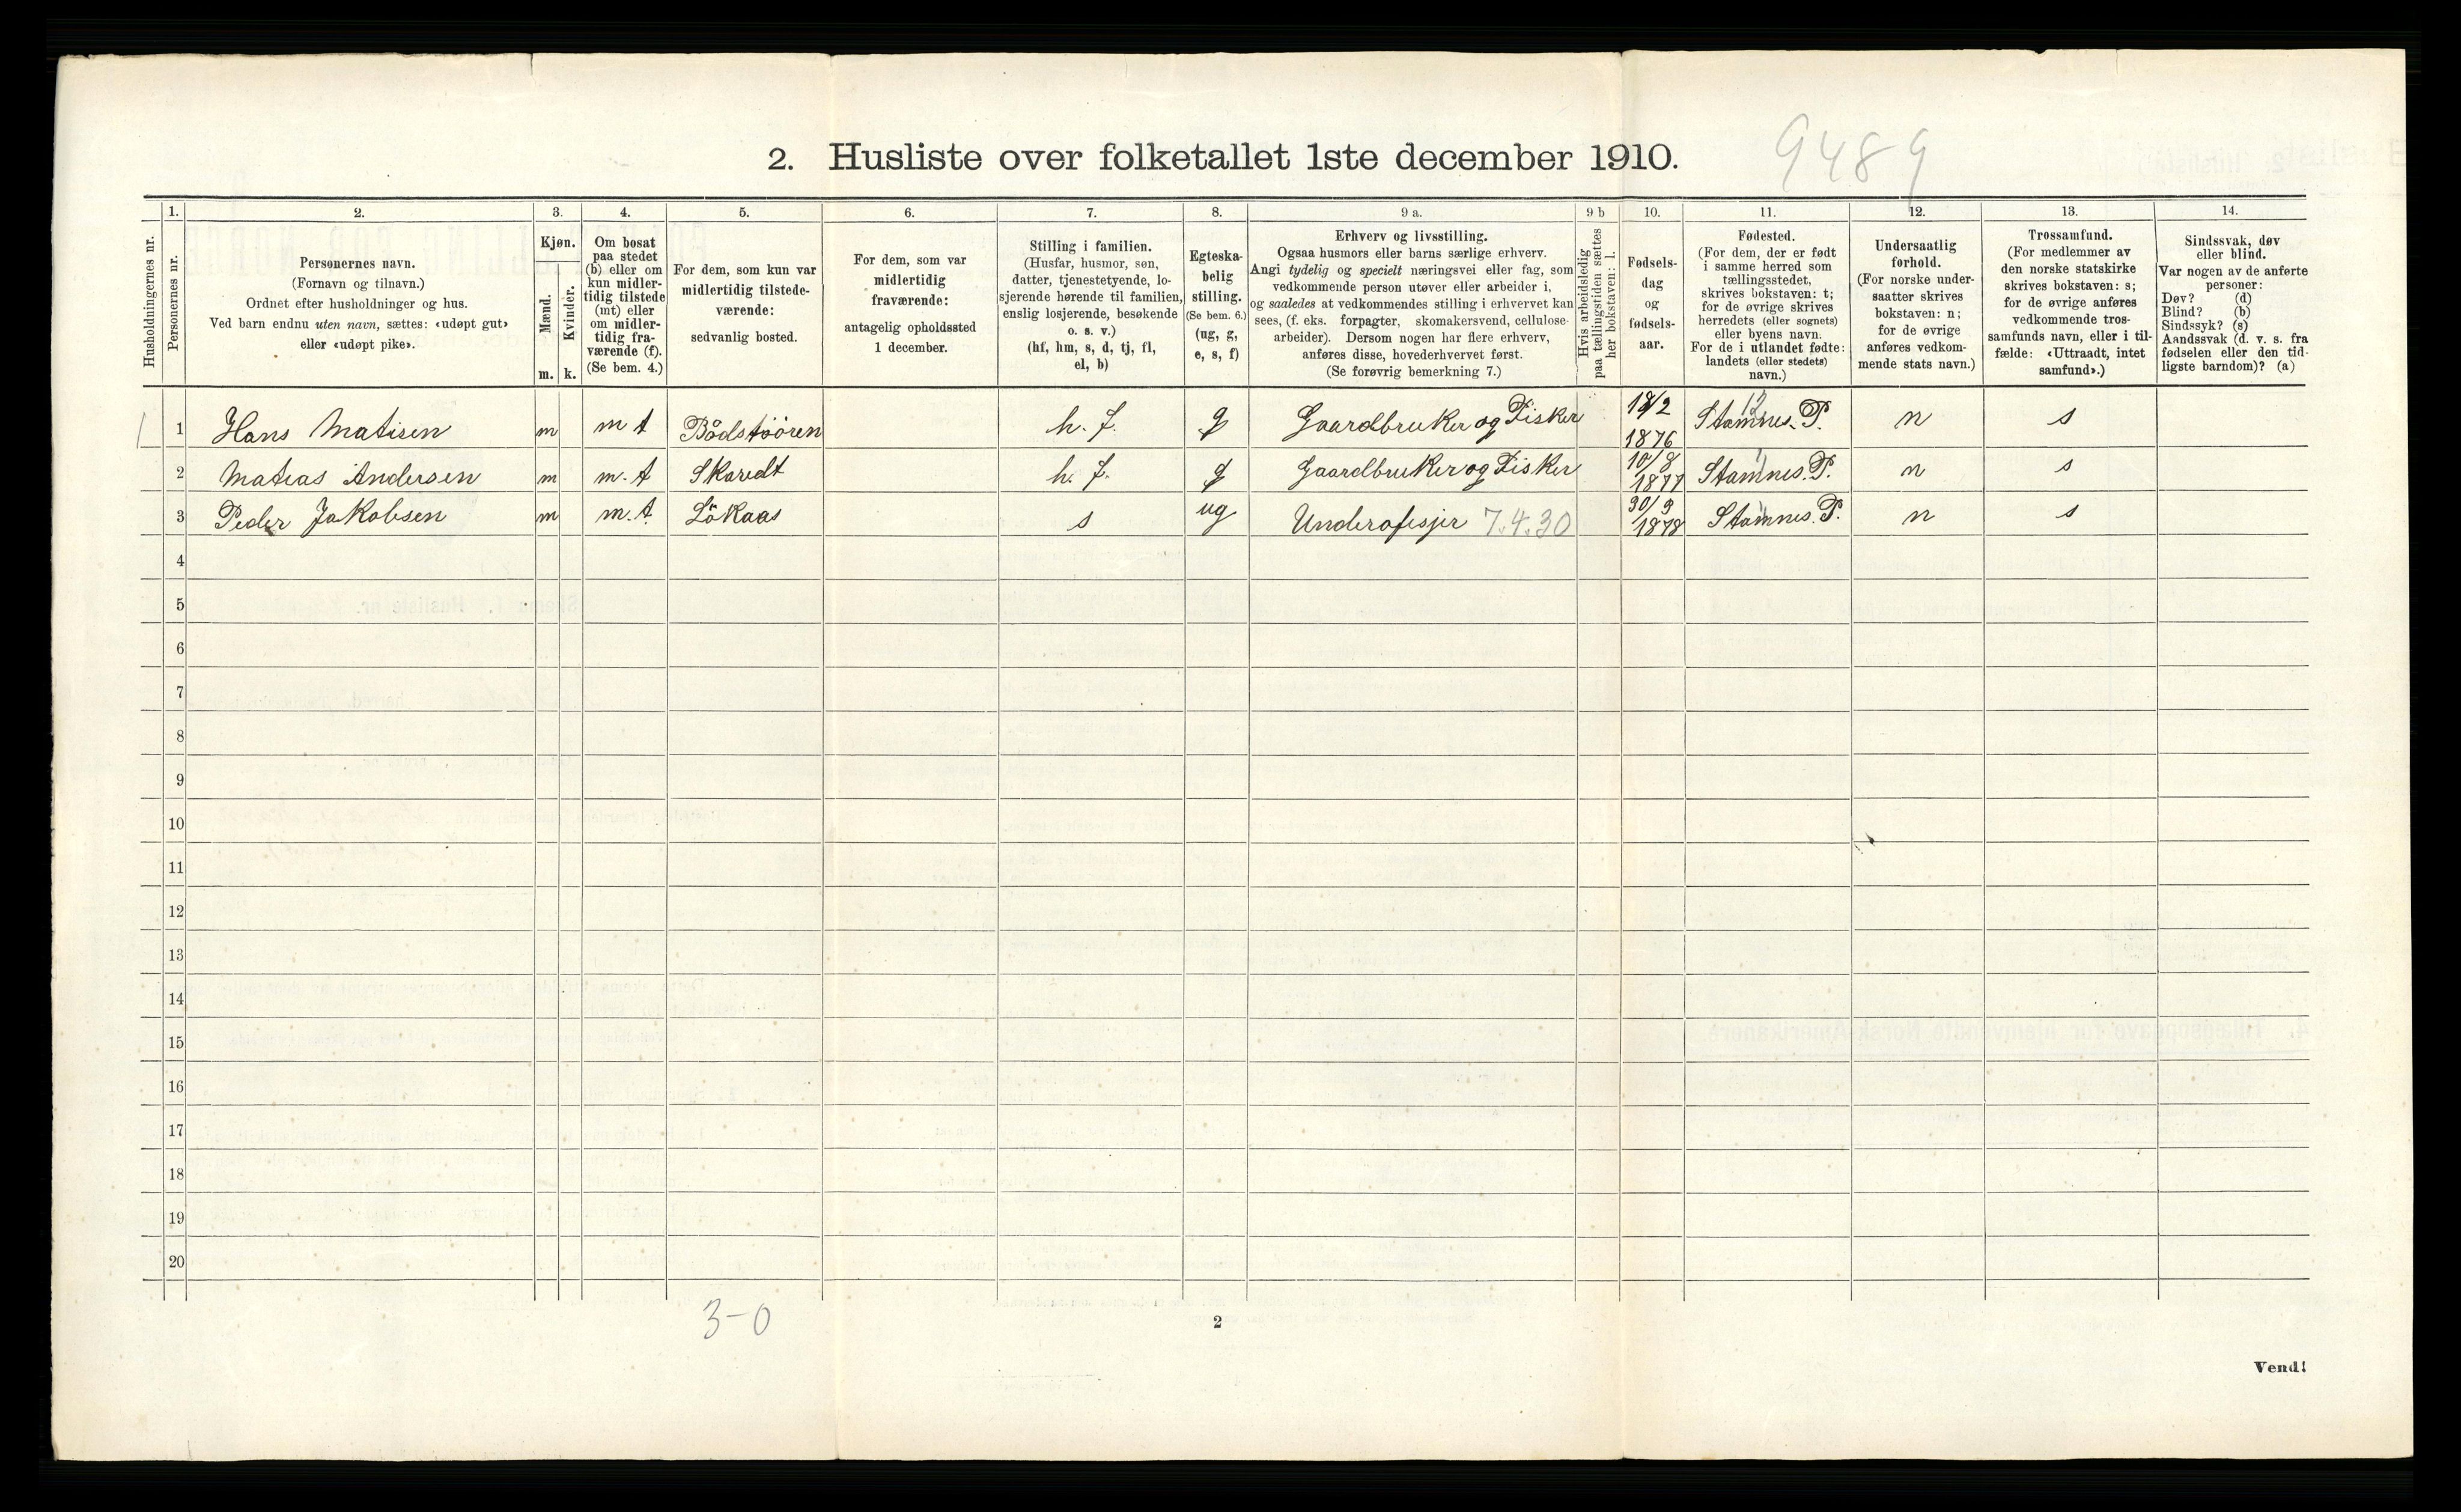 2. Husliste over folketallet 1ste december 1910.
9489
1. 2. 3. 4. 5. 6. 7. 8. 9 a. 9 b 10. 11. 12. 13. 14.
Husholdningernes nr.
Personernes nr.
Personernes navn.
(Fornavn og tilnavn.)
Ordnet efter husholdninger og hus.
Ved barn endnu uten navn, sættes: «udøpt gut»
eller «udøpt pike».
Kjøn.
Mænd.
Kvinder.
m. k.
Om bosat
paa stedet
(b) eller om
kun midler-
tidig tilstede
(mt) eller
om midler-
tidig fra-
værende (f).
(Se bem. 4.)
For dem, som kun var
midlertidig tilstede-
værende:
sedvanlig bosted.
For dem, som var
midlertidig
fraværende:
antagelig opholdssted
1 december.
Stilling i familien.
(Husfar, husmor, søn,
datter, tjenestetyende, lo-
sjerende hørende til familien,
enslig losjerende, besøkende
o. s. v.)
(hf, hm, s, d, tj, fl,
el, b)
Egteska-
belig
stilling.
(Se bem. 6.)
(ug, g,
e, s, f)
Erhverv og livsstilling.
Ogsaa husmors eller barns særlige erhverv.
Angi tydelig og specielt næringsvei eller fag, som
vedkommende person utøver eller arbeider i,
og saaledes at vedkommendes stilling i erhvervet kan
sees, (f. eks. forpagter, skomakersvend, cellulose-
arbeider). Dersom nogen har flere erhverv,
anføres disse, hovederhvervet først.
(Se forøvrig bemerkning 7.)
Hvis arbeidsledig
paa tællingstiden sættes
her bokstaven: l.
Fødsels-
dag
og
fødsels-
aar.
Fødested.
(For dem, der er født
i samme herred som
tællingsstedet,
skrives bokstaven: t;
for de øvrige skrives
herredets (eller sognets)
eller byens navn.
For de i utlandet fødte:
landets (eller stedets)
navn.)
Undersaatlig
forhold.
(For norske under-
saatter skrives
bokstaven: n;
for de øvrige
anføres vedkom-
mende stats navn.)
Trossamfund.
(For medlemmer av
den norske statskirke
skrives bokstaven: s;
for de øvrige anføres
vedkommende tros-
samfunds navn, eller i til-
fælde: «Uttraadt, intet
samfund».)
Sindssvak, døv
eller blind.
Var nogen av de anførte
personer:
Døv? (d)
Blind? (b)
Sindssyk? (s)
Aandssvak (d. v. s. fra
fødselen eller den tid-
ligste barndom)? (a)
1 1 Hans Matisen m m t Bådstöören h. f. g Gaardbruker og Fisker 1876 Stamnes. P. n s
2 Matias Andersen m m. t Skaredt h. f. g Gaardbruker og Fisker 10/8 1877 Stamnes. P. n s
3 Peder Jakobsen m m. t. Lökaas s ug Underofisjer 7.4.30 30/9 1878 Stamnes. P. n s
4
5
6
7
8
9
10
11
12
13
14
15
16
17
18
19
20
3-0
2
Vend!